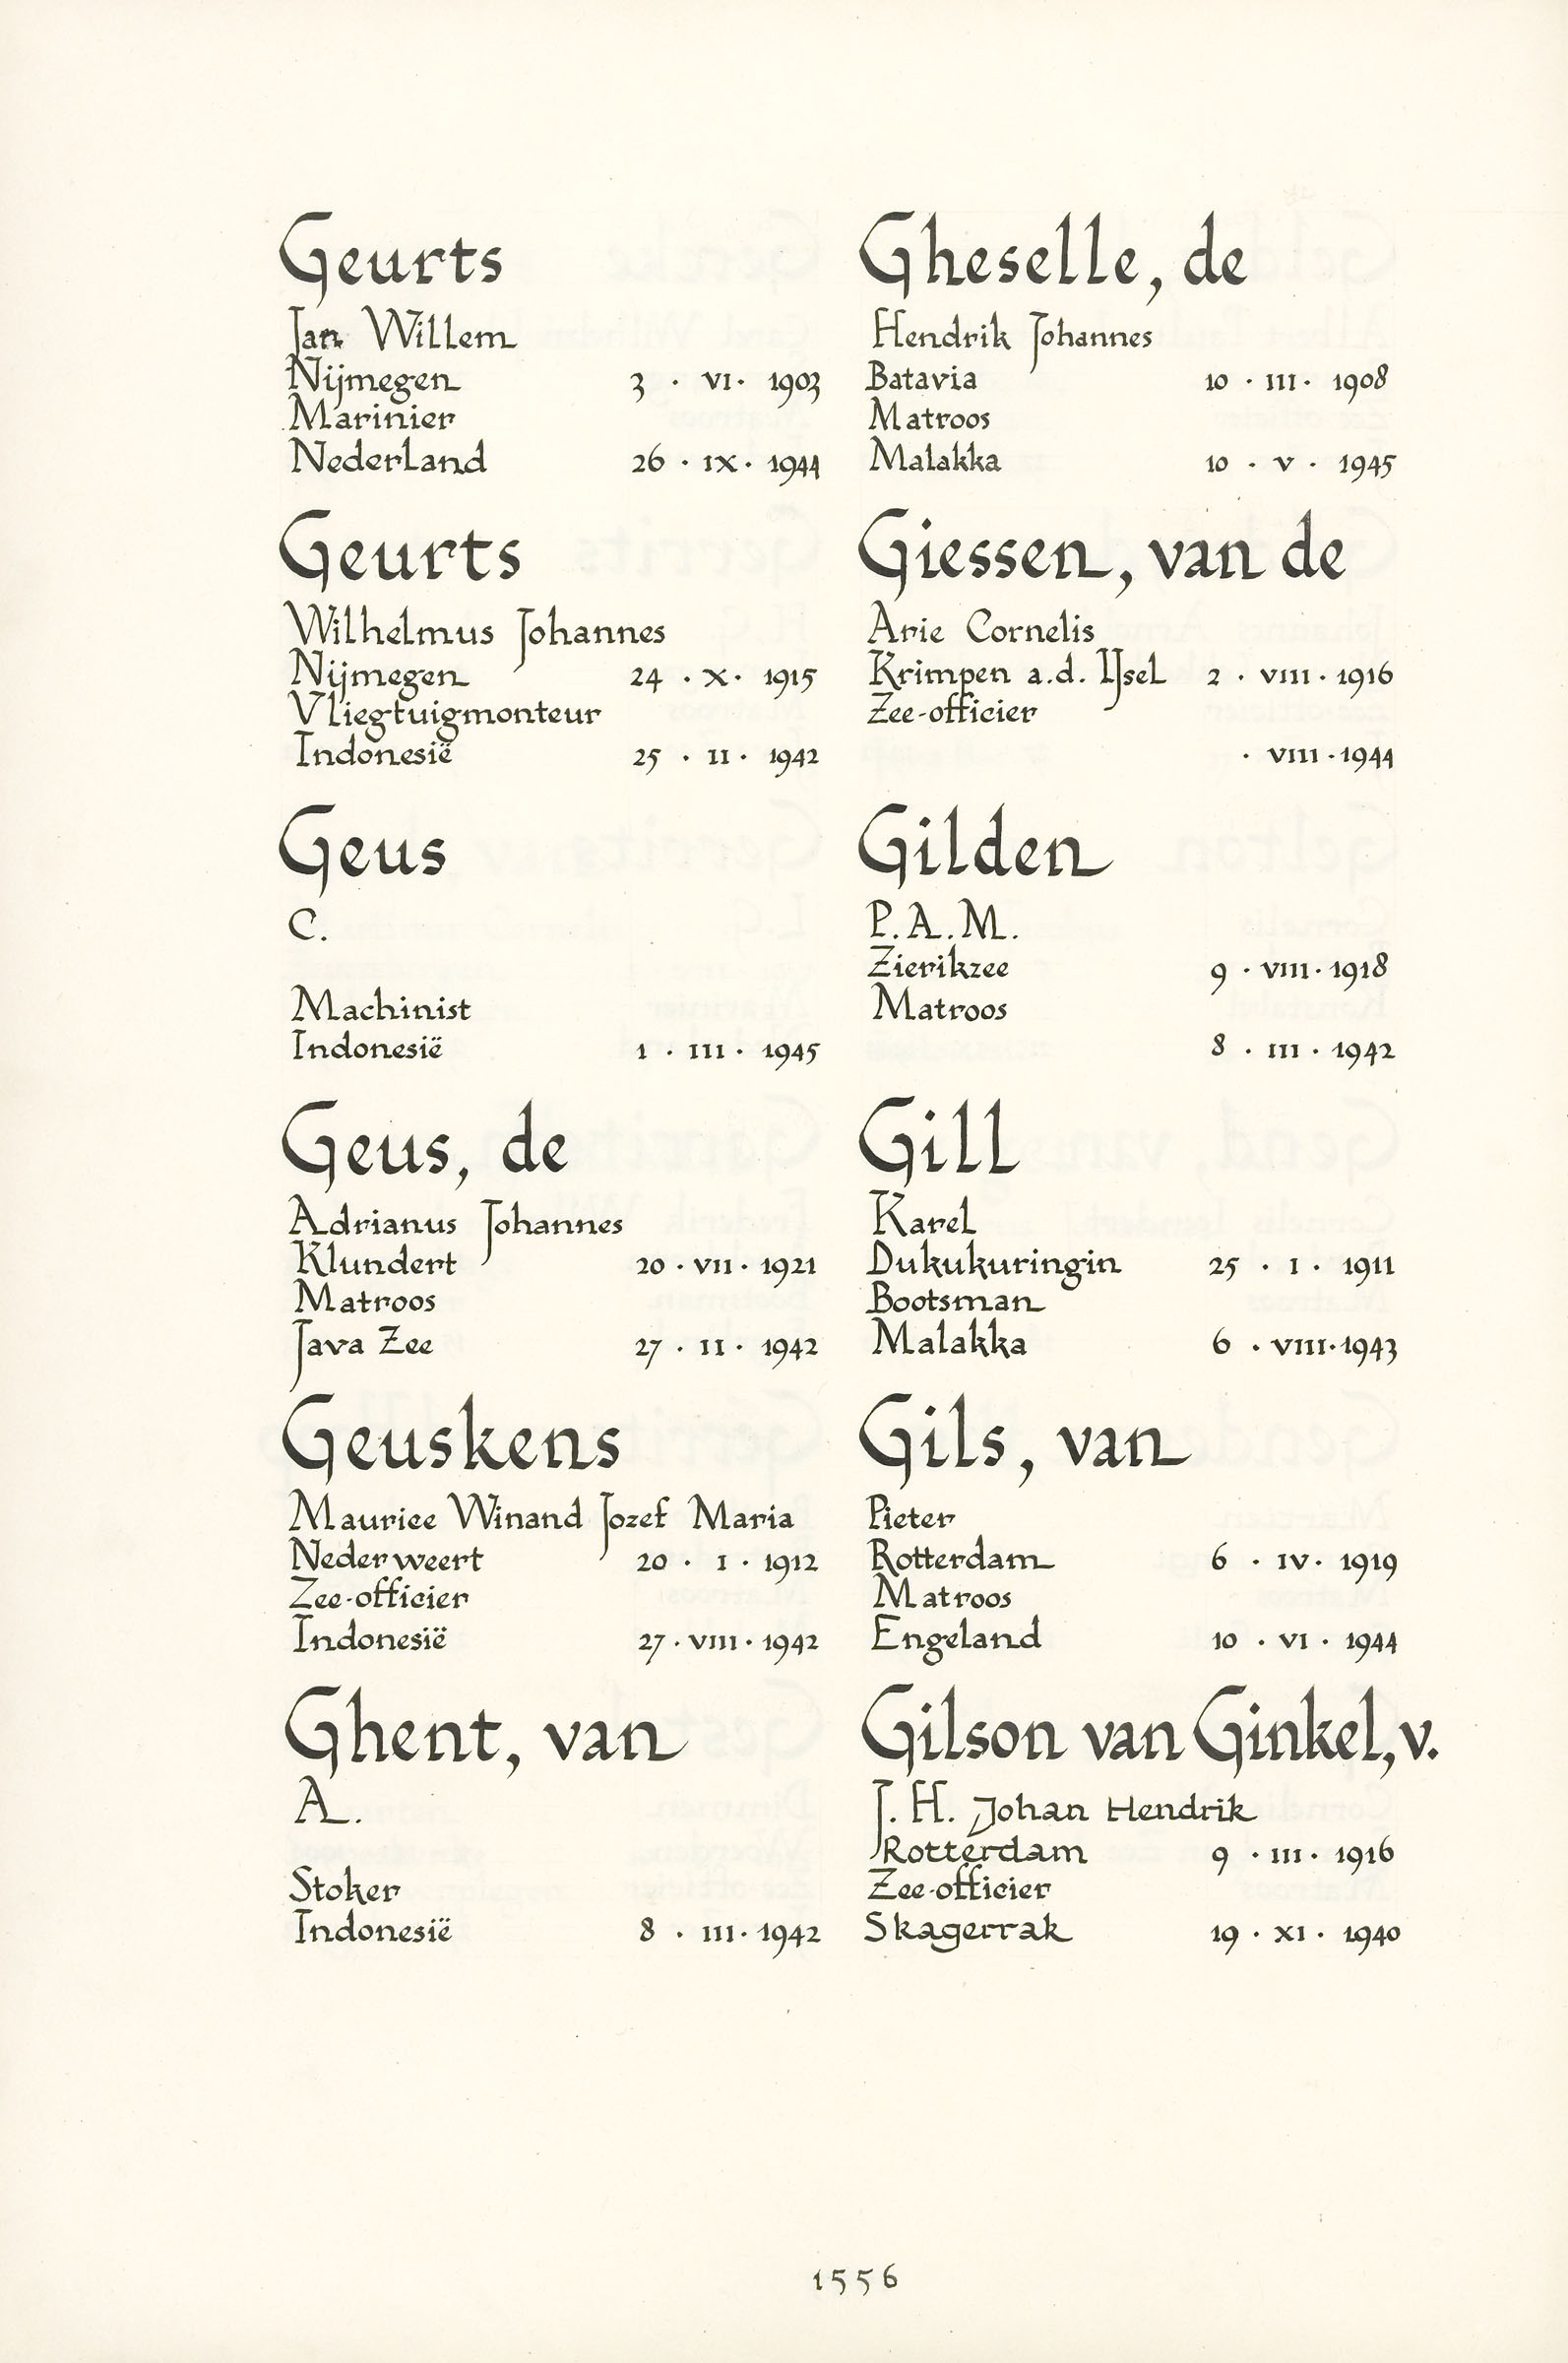 Geurts
Jan Willem
Nijmegen 3 · VI · 1903
Marinier
Nederland 26 · IX · 1944
Geurts
Wilhelmus Johannes
Nijmegen 24 · X · 1915
Vliegtuigmonteur
Indonesië 25 · II · 1942
Geus
C.
Machinist
Indonesië 1 · III · 1945
Geus, de
Adrianus Johannes
Klundert 20 · VII · 1921
Matroos
Java Zee 27 · II · 1942
Geuskens
Maurice Winand Jozef Maria
Nederweert 20 · I · 1912
Zee-officier
Indonesië 27 · VIII · 1942
Ghent, van
A.
Stoker
Indonesië 8 · III · 1942
Gheselle, de
Hendrik Johannes
Batavia 10 · III · 1908
Matroos
Malakka 10 · V · 1945
Giessen, van de
Arie Cornelis
Krimpen a.d. IJsel 2 · VIII · 1916
Zee-officier
· VIII · 1944
Gilden
P.A.M.
Zierikzee 9 · VIII · 1918
Matroos
8 · III · 1942
Gill
Karel
Dukukuringin 25 · I · 1911
Bootsman
Malakka 6 · VIII · 1943
Gils, van
Pieter
Rotterdam 6 · IV · 1919
Matroos
Engeland 10 · VI · 1944
Gilson van Ginkel, v.
J. H. Johan Hendrik
Rotterdam 9 · III · 1916
Zee-officier
Skagerrak 19 · XI · 1940
1556